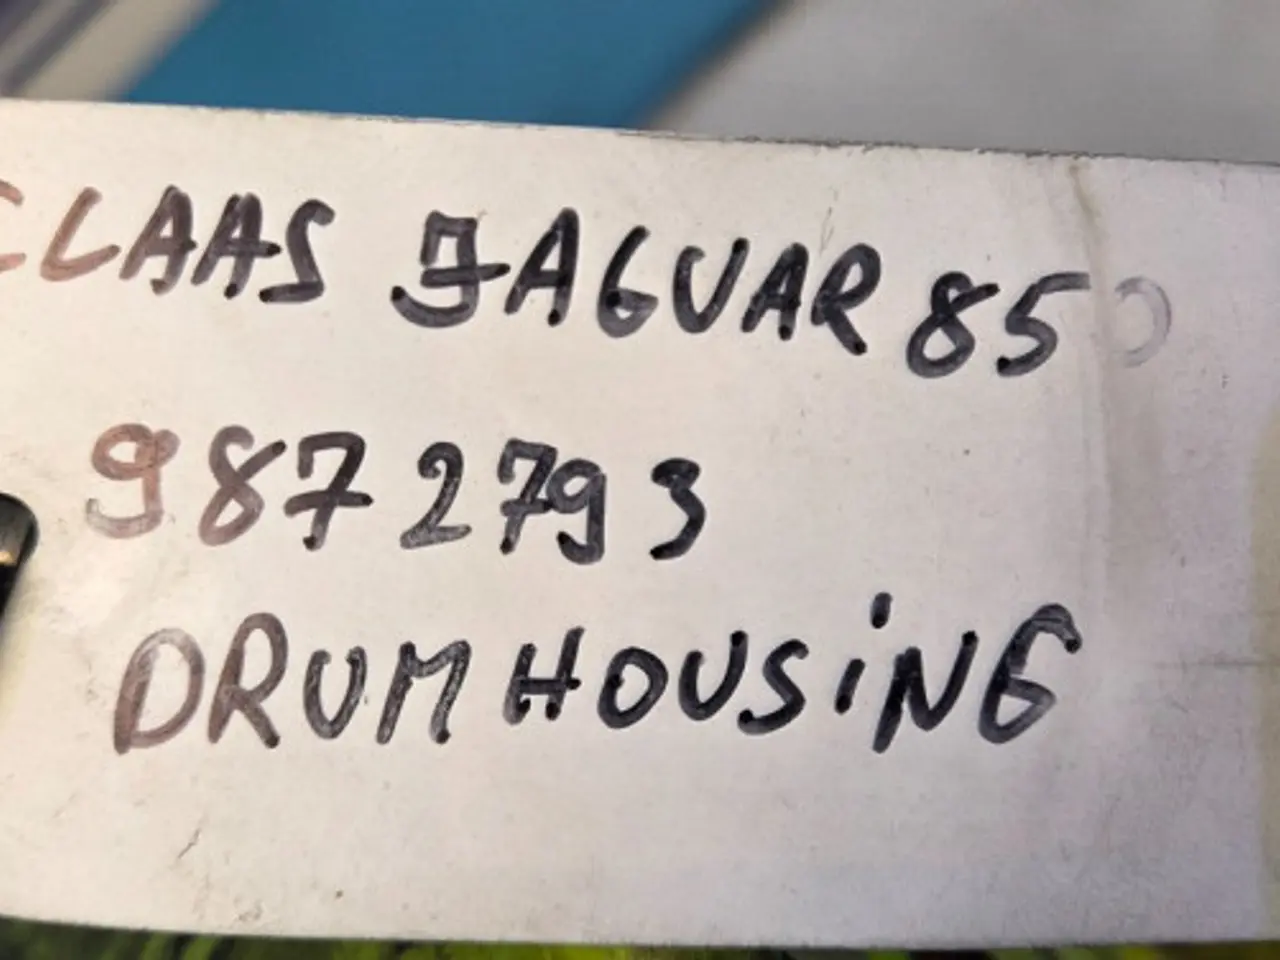 CLAAS JAGUAR 850
987 279 3
DRUM HOUSiNG